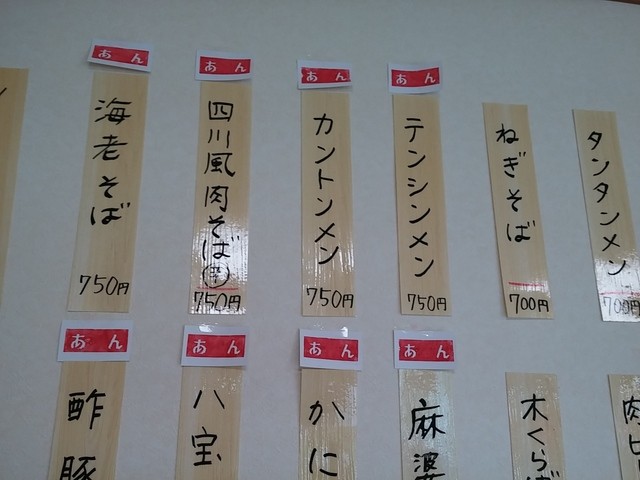 あん
海老そば
750円
あん
四川風肉そば 辛
750円
あん
カントンメン
750円
あん
テンシンメン
750円
ねぎそば
700円
タンタンメン
700円
あん
酢豚
あん
八宝
あん
かに
あん
麻婆
木くらげ
肉